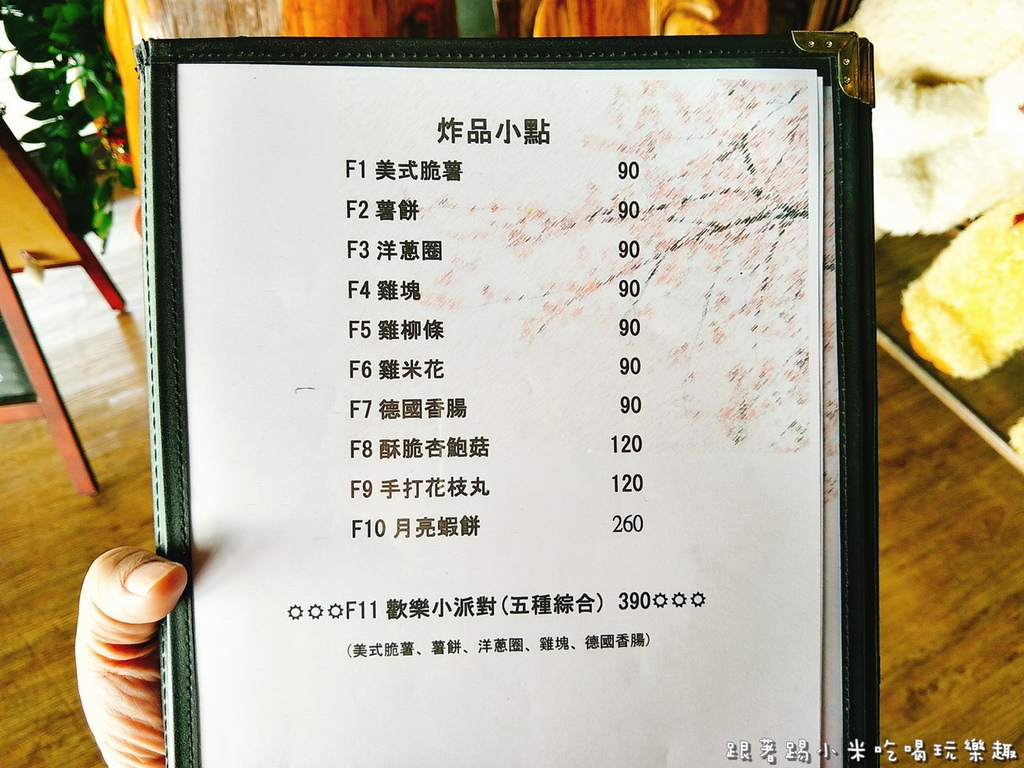 炸品小點
F1 美式脆薯 90
F2 薯餅 90
F3 洋蔥圈 90
F4 雞塊 90
F5 雞柳條 90
F6 雞米花 90
F7 德國香腸 90
F8 酥脆杏鮑菇 120
F9 手打花枝丸 120
F10 月亮蝦餅 260
☼☼☼F11 歡樂小派對(五種綜合) 390☼☼☼
(美式脆薯、薯餅、洋蔥圈、雞塊、德國香腸)
跟著踢小米吃喝玩樂趣